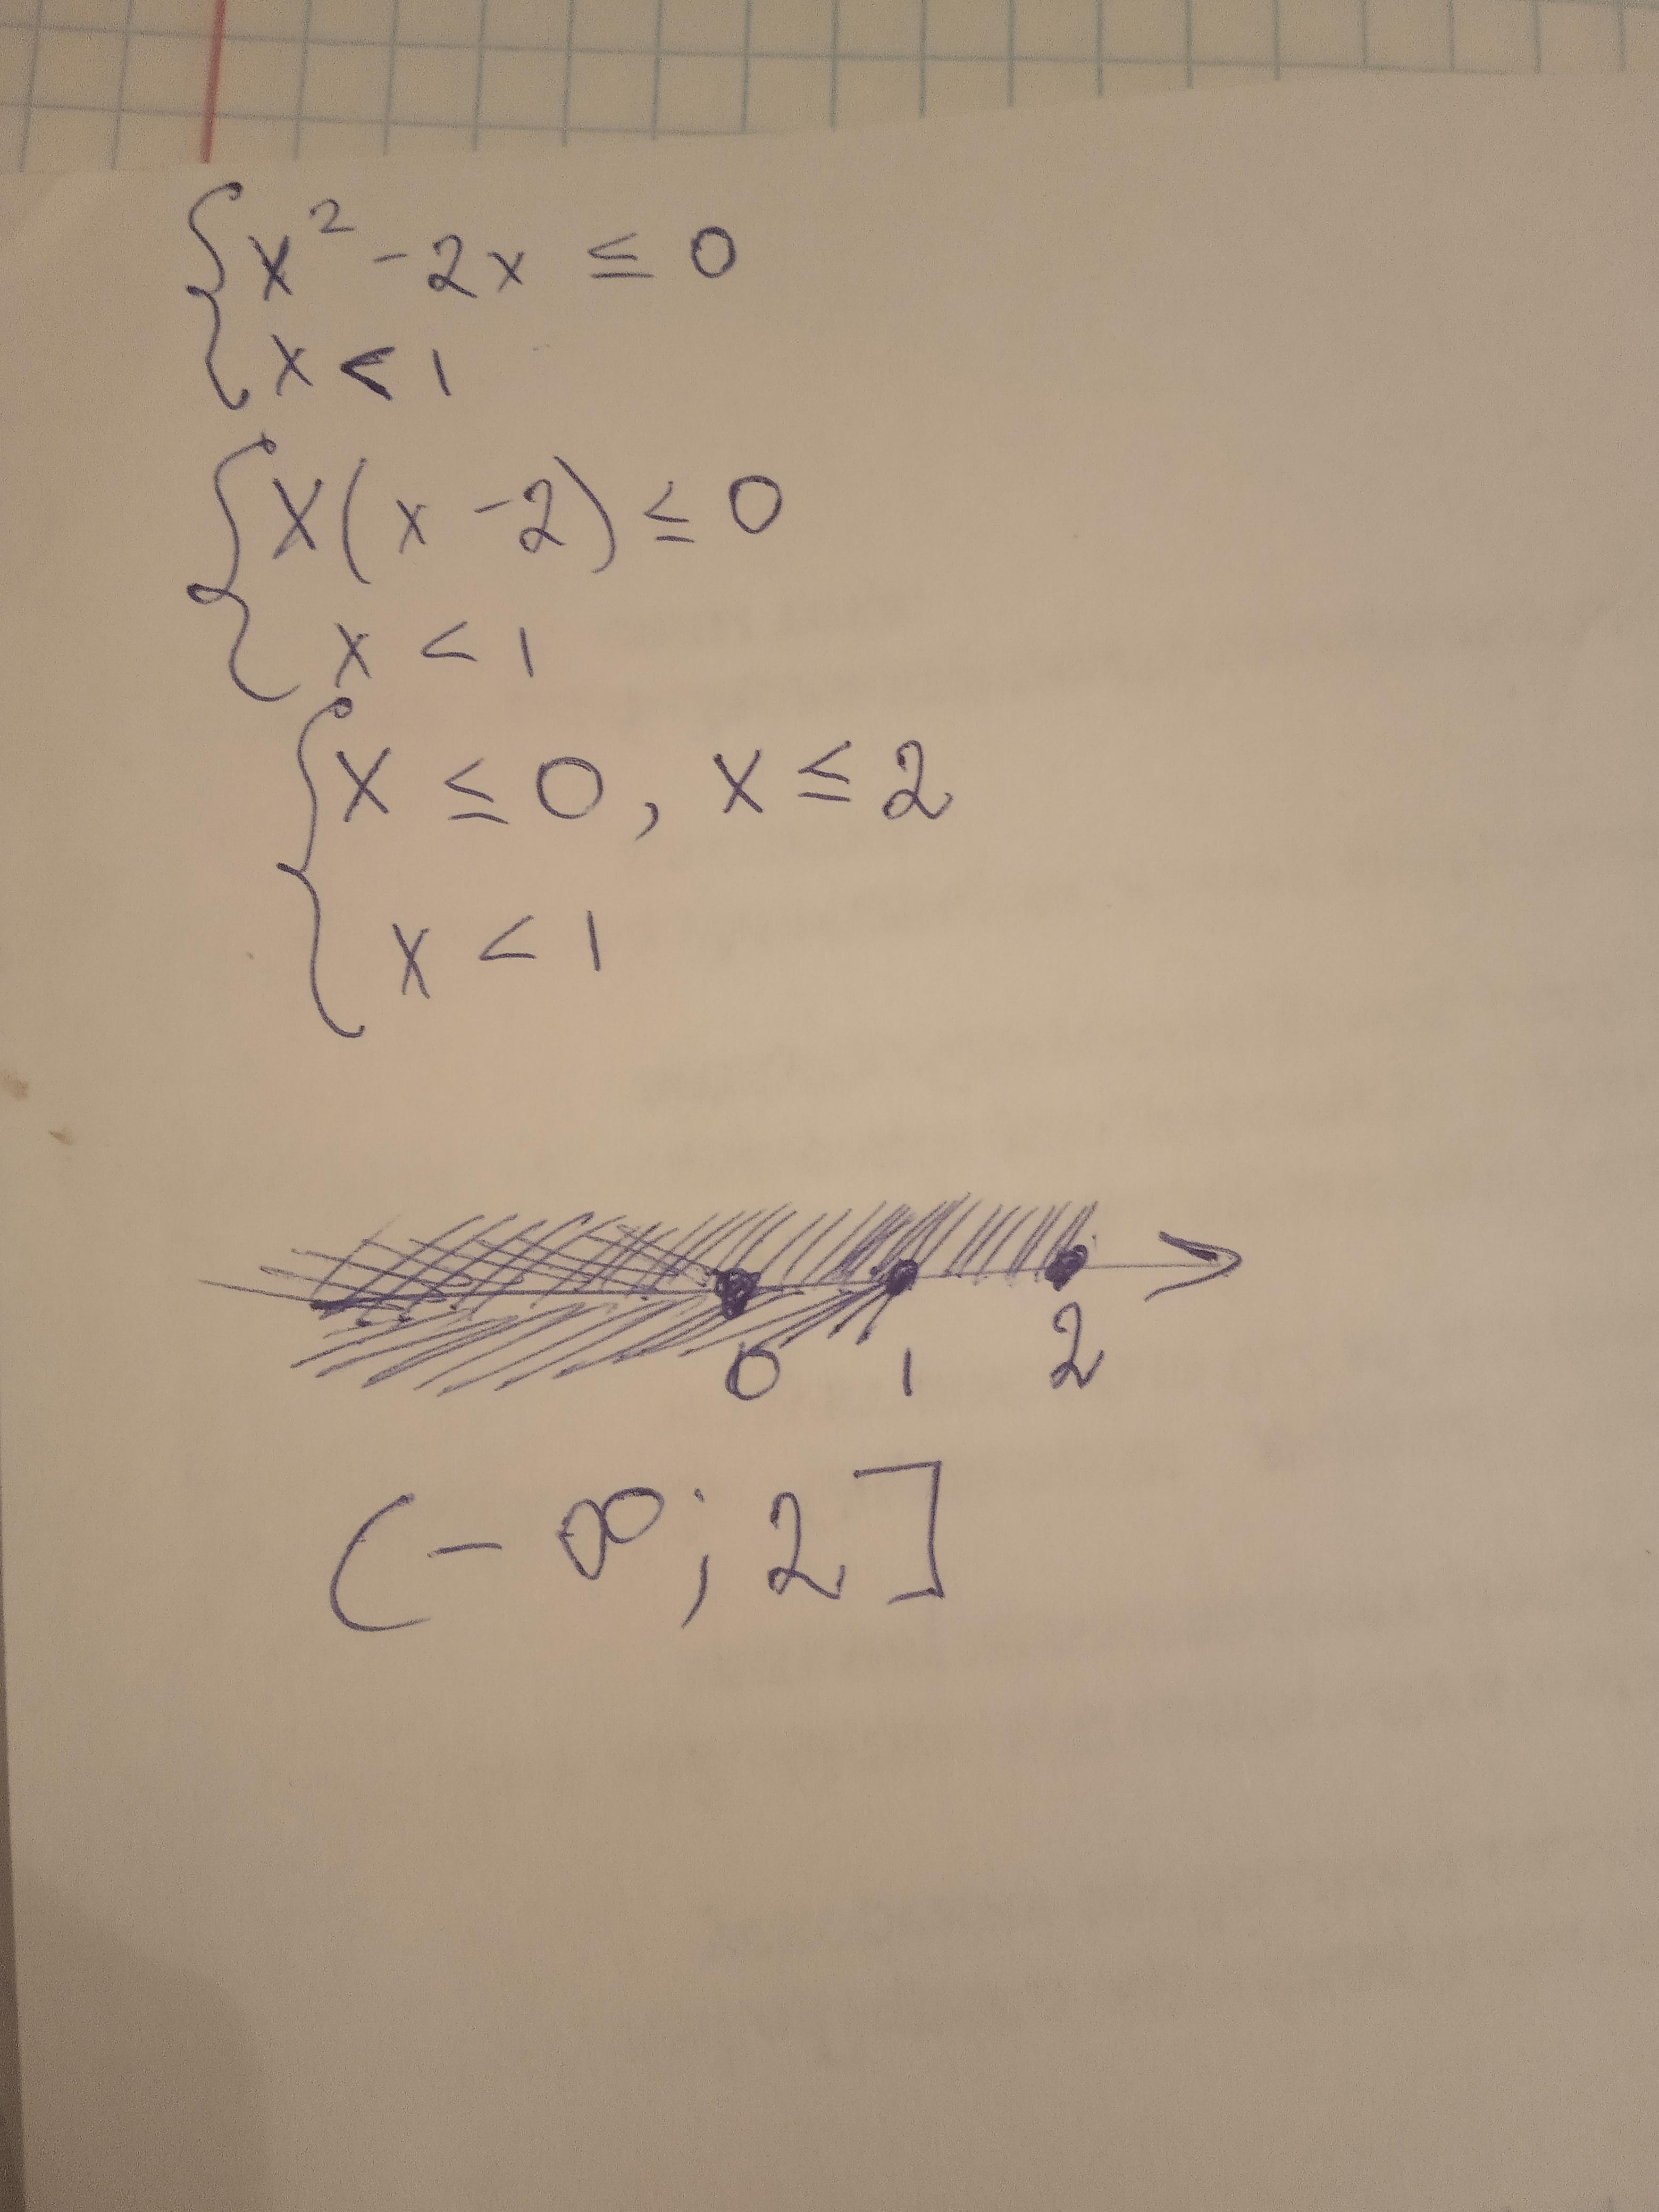 x² - 2x ≤ 0
x < 1
x(x - 2) ≤ 0
x < 1
x ≤ 0, x ≤ 2
x < 1
0 1 2
(-∞; 2]